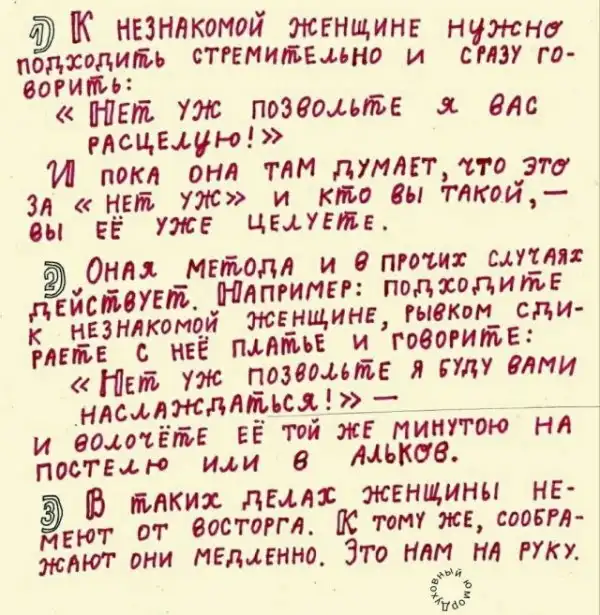 1) К незнакомой женщине нужно
подходить стремительно и сразу го-
ворить:
« Нет уж позвольте я вас
расцелую!»
И пока она там думает, что это
за « нет уж» и кто вы такой, —
вы её уже целуете.
2) Оная метода и в прочих случаях
действует. Например: подходите
к незнакомой женщине, рывком сди-
раете с неё платье и говорите:
« Нет уж позвольте я буду вами
наслаждаться!» —
и волочёте её той же минутою на
постелю или в альков.
3) В таких делах женщины не-
меют от восторга. К тому же, сообра-
жают они медленно. Это нам на руку.
Духовный юмор